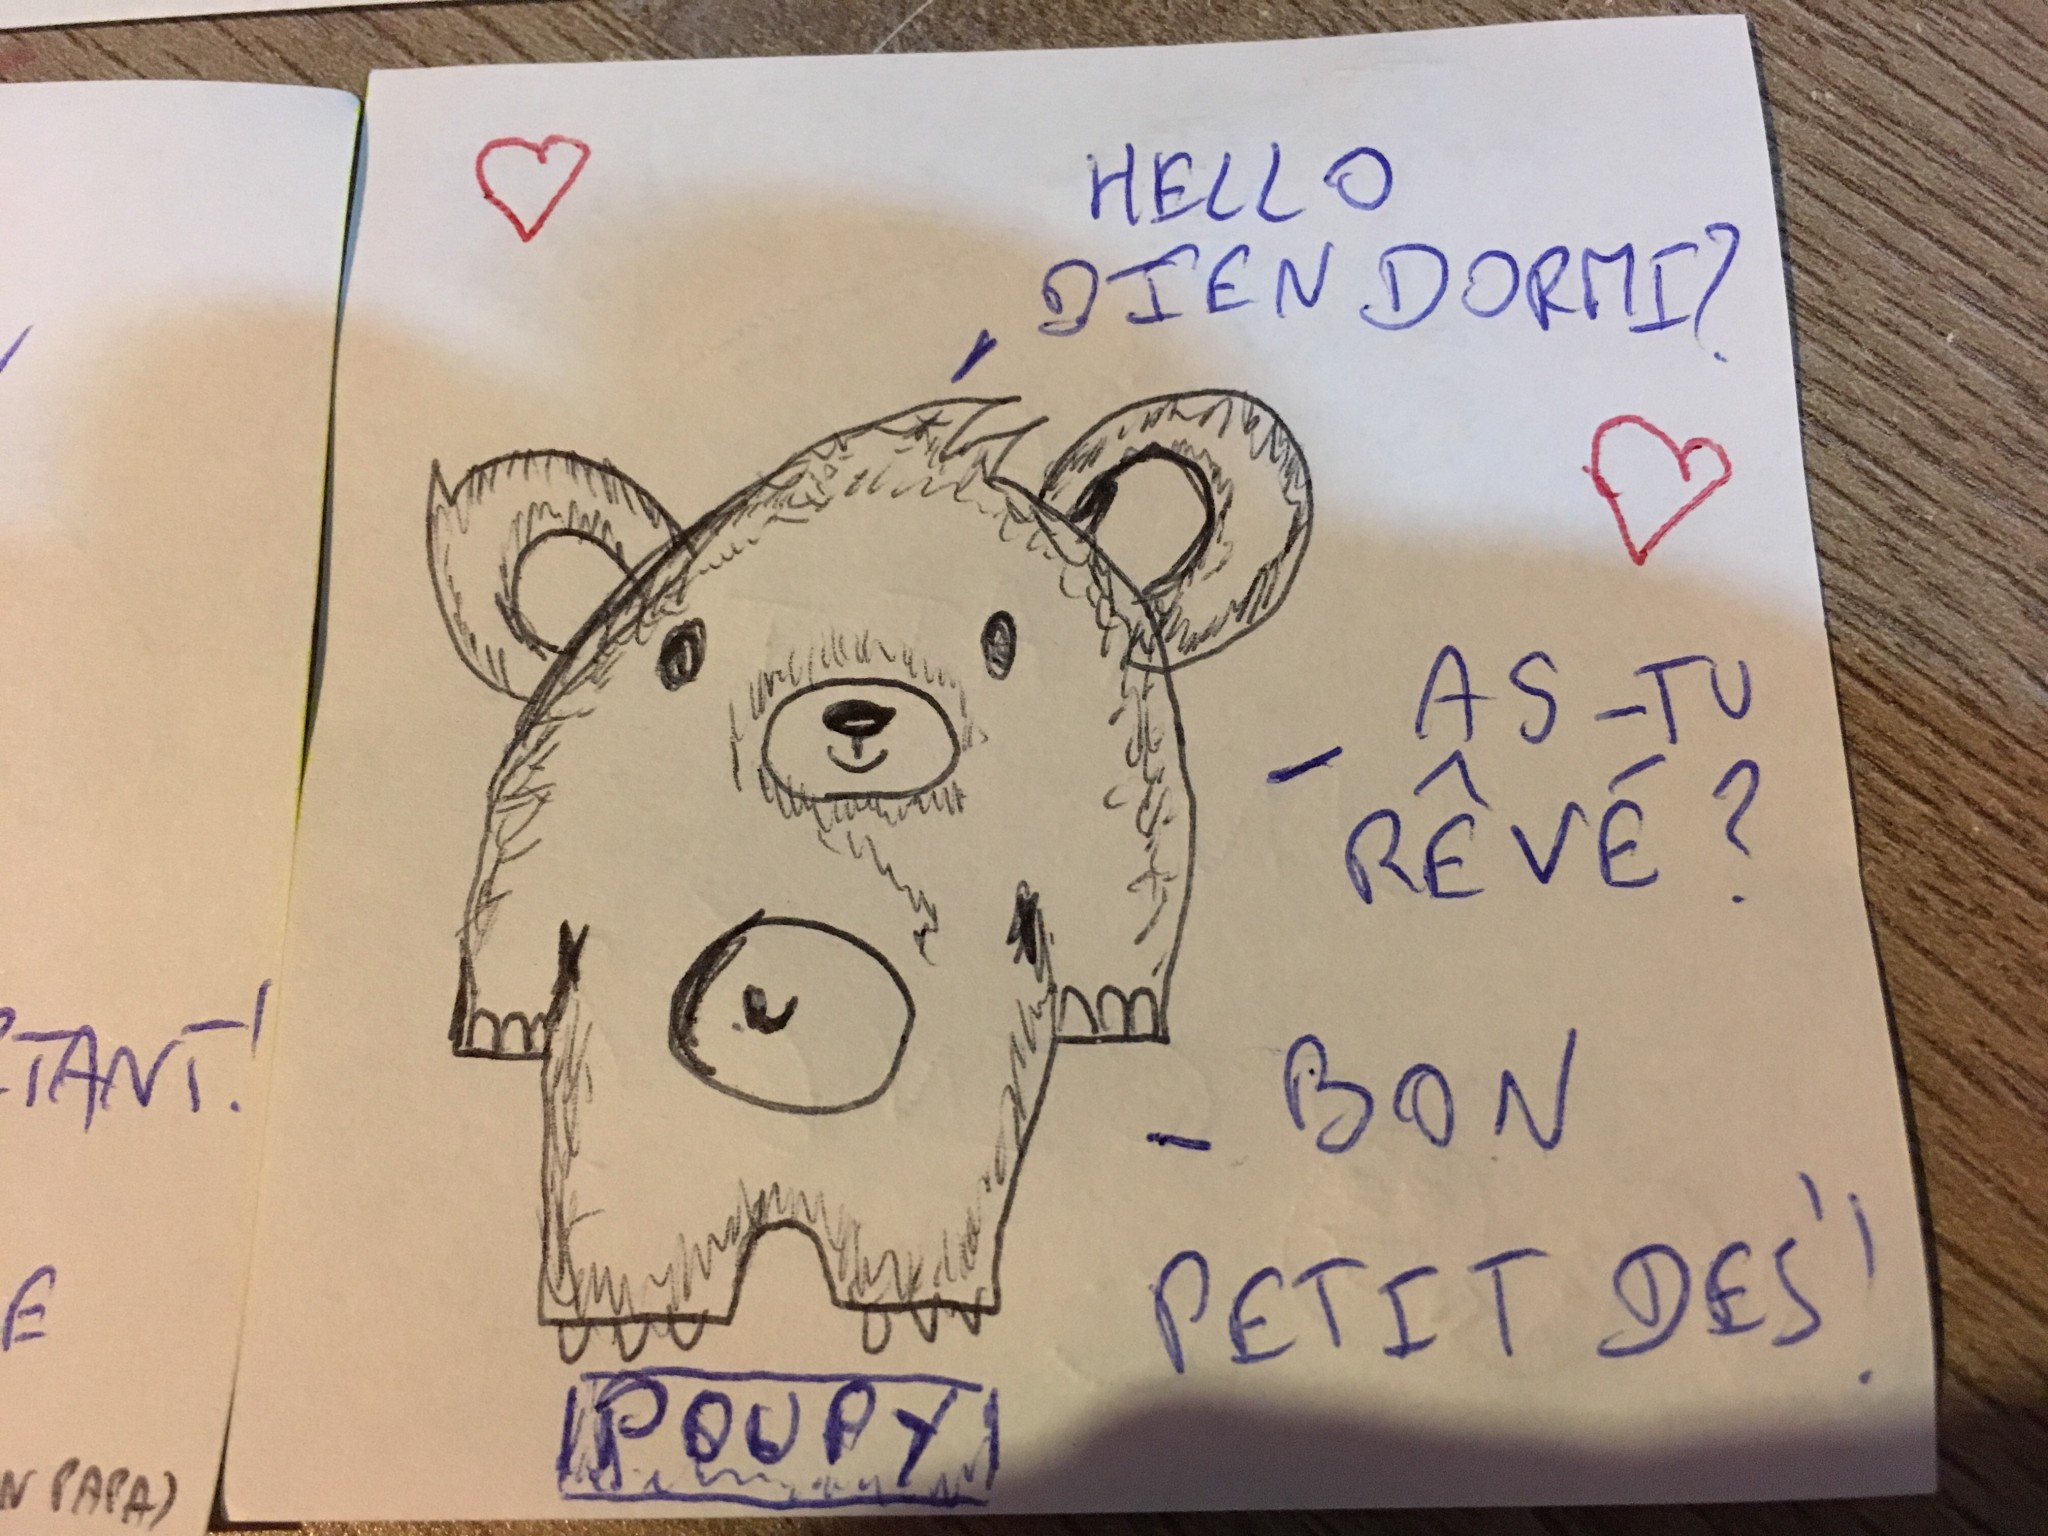 HELLO
BIEN DORMI?
- AS-TU
RÊVÉ?
- BON
PETIT DES'!
POUPY
TANT!
E
N PAPA)